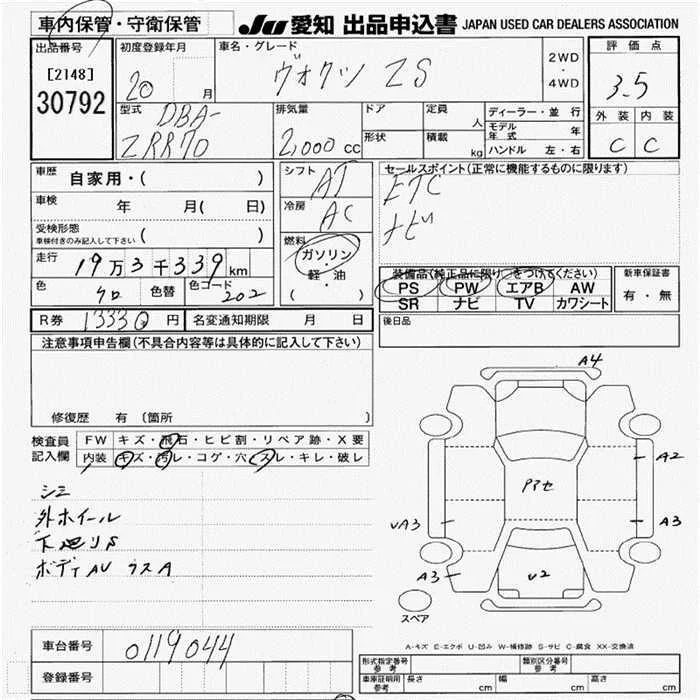 車内保管・守衛保管
JU 愛知 出品申込書 JAPAN USED CAR DEALERS ASSOCIATION
出品番号
[2148]
30792
初度登録年月
20 月
車名・グレード
ヴォクシ ZS
2WD
・
4WD
評価点
3.5
外装 内装
C C
型式
DBA-
ZRR70
排気量
2,000 cc
ドア
形状
定員 人
積載 kg
ディーラー・並行
モデル年式 年
ハンドル 左・右
車歴
自家用・( )
車検
年 月( 日)
受検形態
車検付きのみ記入して下さい ( )
走行
19万3千339km
色
クロ
色替
色コード
202
シフト
AT
冷房
AC
燃料
ガソリン
・
軽・油
( )
セールスポイント(正常に機能するものに限ります)
ETC
ナビ
装備品(純正品に限り○をつけてください)
PS PW エアB AW
SR ナビ TV カワシート
新車保証書
有・無
R券 13330 円 名変通知期限 月 日
後日品
注意事項申告欄(不具合内容等は具体的に記入して下さい)
修復歴 有 〔箇所 〕
検査員
記入欄
FW キズ・飛石・ヒビ割・リペア跡・X要
内装 キズ・汚レ・コゲ・穴・スレ・キレ・破レ
シミ
外ホイール
ボディAU ラスA
A4
A2
A3
UA3
A3
U2
スペア
A-キズ E-エクボ U-凹み W-補修跡 S-サビ C-腐食 XX-交換済
車台番号
0119044
登録番号
形式指定番号
参考
類別区分番号
参考
車庫証明用
参考
長さ cm 幅 cm 高さ cm